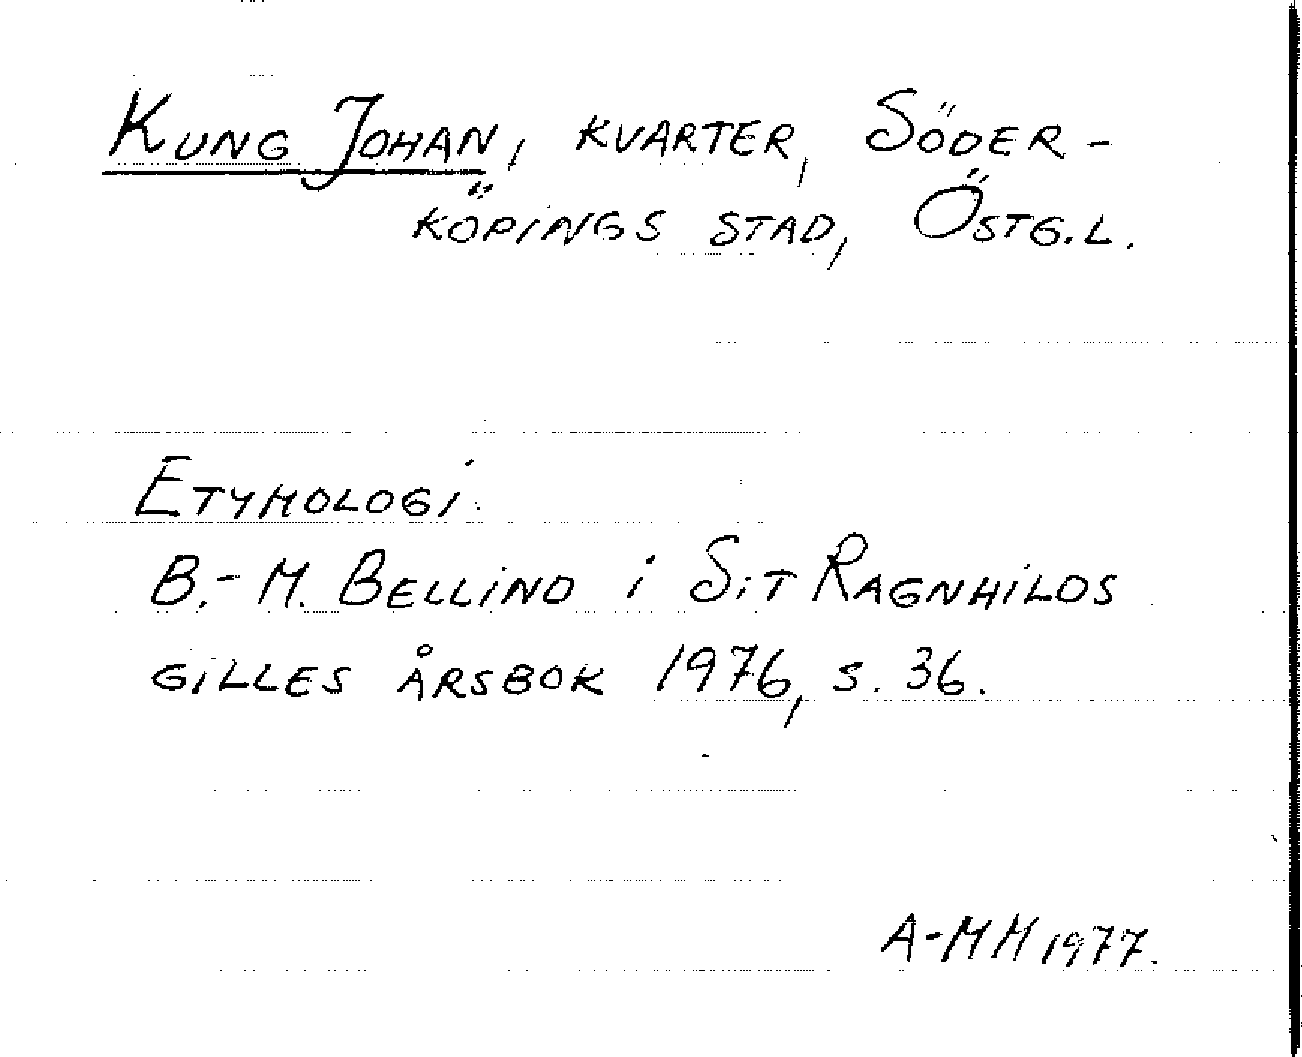 Kung Johan, kvarter, Söder-
köpings stad, Östg.l.
Etymologi:
B.-M. Bellind i S:t Ragnhilds
gilles årsbok 1976, s. 36.
A-MH 1977.